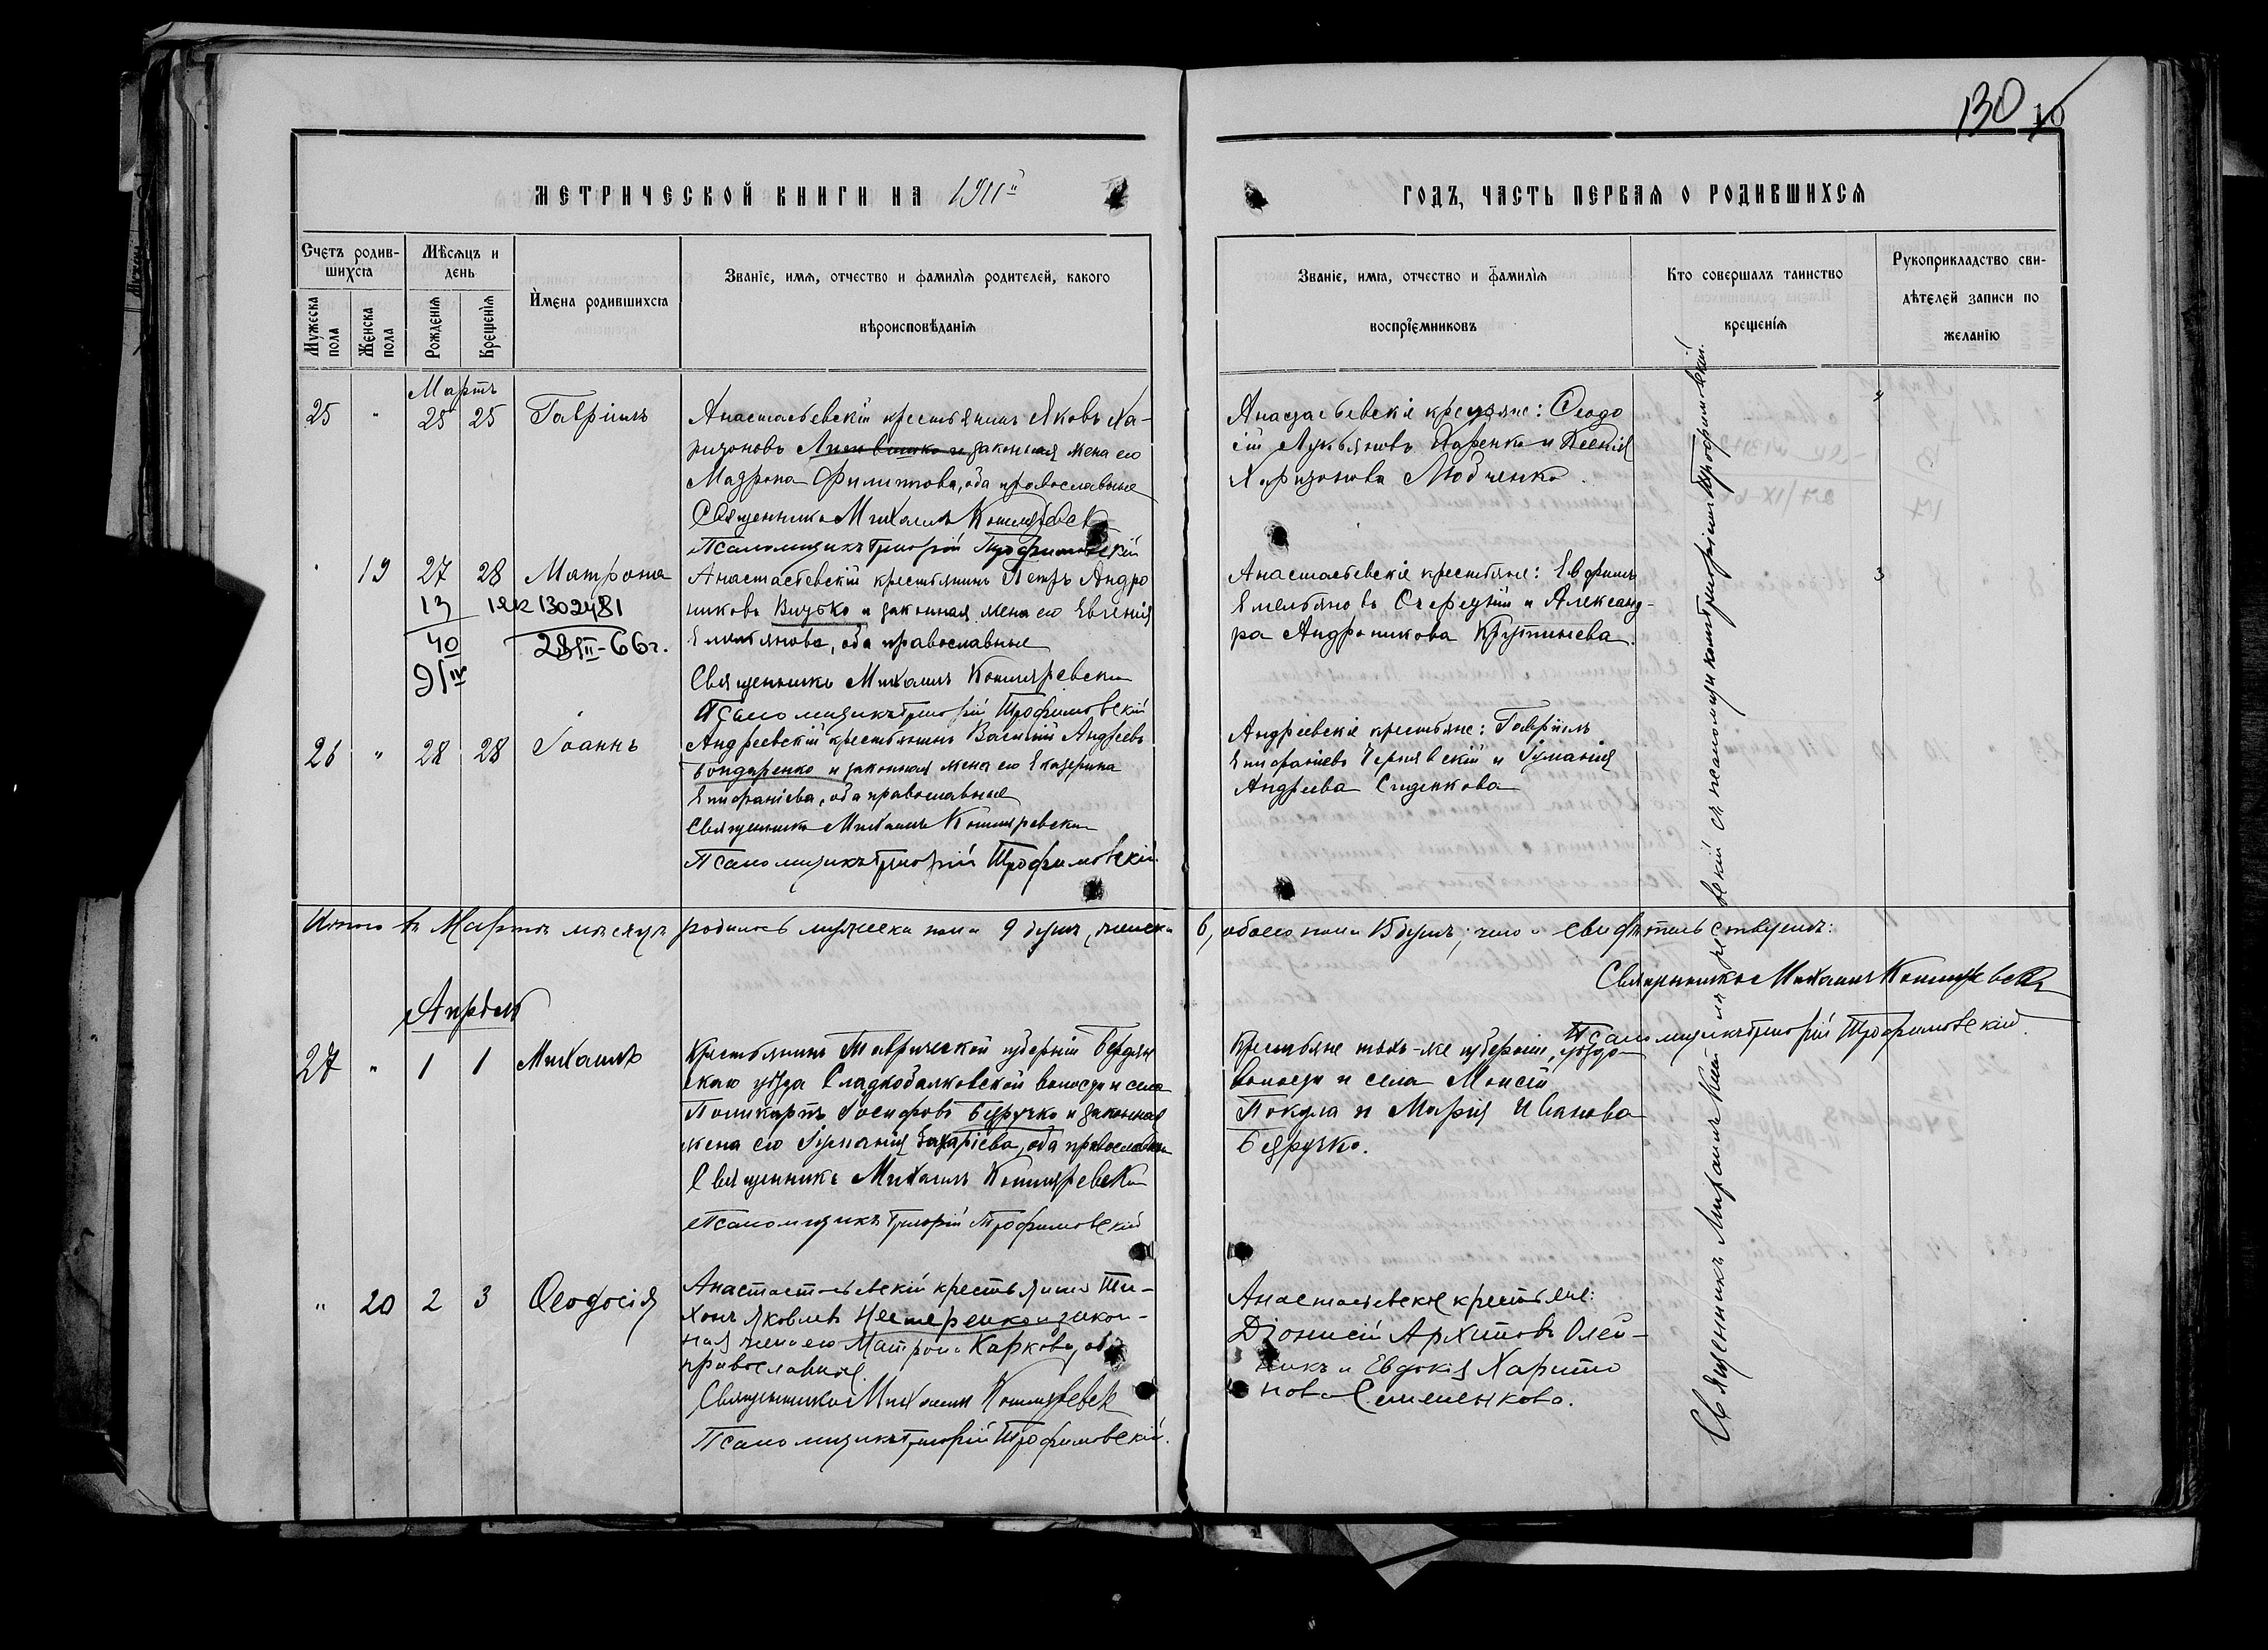 130 10
МЕТРИЧЕСКОЙ КНИГИ НА 1911й
ГОДЪ, ЧАСТЬ ПЕРВАЯ О РОДИВШИХСЯ
Счетъ родив-
шихся
Мѣсяцъ и
день
Мужеска
пола
Женска
пола
Рожденія
Крещенія
Имена родившихся
Званіе, имя, отчество и фамилія родителей, какого
вѣроисповѣданія
Званіе, имя, отчество и фамилія
воспріемниковъ
Кто совершалъ таинство
крещенія
Рукоприкладство сви-
дѣтелей записи по
желанію
Мартъ
25 " 25 25 Гавріилъ
Анастасьевскій крестьянинъ Яковъ Ха-
ризоновъ и законная жена его
Матрона Филиппова, оба православные
Священникъ Михаилъ Котляревск
Псаломщикъ Григорій Трофимовскій
Анастасьевскіе крестьяне: Ѳеодо
сій Лукьяновъ и Ксенія
Харизонова Любченко.
" 19 27 28 Матрона
13 1ЯК 1302481
40 28/II-66г.
9/IV
Анастасьевскій крестьянинъ Петръ Андро
никовъ Внучко и законная жена его Евгенія
Емельянова, оба православные
Священникъ Михаилъ Котляревски
Псаломщикъ Григорій Трофимовскій
Анастасьевскіе крестьяне: Евфимъ
Емельяновъ Очередній и Александ-
ра Андроникова Крутинева.
26 " 28 28 Іоаннъ
Андреевскій крестьянинъ Василій Андреевъ
Бондаренко и законная жена его Екатерина
Епифаніева, оба православные
Священникъ Михаилъ Котляревски
Псаломщикъ Григорій Трофимовскій
Андреевскіе крестьяне: Гавріилъ
Епифаніевъ Чернявскій и Іуліанія
Андреева Сиденкова
Итого въ Мартѣ мѣсяцѣ родилось мужеска пола 9 душъ, женска 6, обоего пола 15 душъ; что и свидѣтельствуемъ:
Священникъ Михаилъ Котляревски
Псаломщикъ Григорій Трофимовскій.
Апрѣль
27 " 1 1 Михаилъ
Крестьянинъ Таврической губерніи Бердян
скаго уѣзда Сладкобалковской волости и села
Поликарпъ Іосифовъ Безручко и законная
жена его Іуліанія Захаріева, оба православные
Священникъ Михаилъ Котляревски
Псаломщикъ Григорій Трофимовскій
Крестьяне тѣхъ-же губерніи, уѣзда
волости и села Моисей
Покула и Марія Иванова
Безручко.
" 20 2 3 Ѳеодосія
Анастасьевскій крестьянинъ Ти-
хонъ Яковлевъ Нестеренко и закон-
ная жена его Матрона Каркова, оба
православные.
Священникъ Михаилъ Котляревск
Псаломщикъ Григорій Трофимовскій.
Анастасьевскіе крестьяне:
Діонисій Архиповъ Олей-
никъ и Евдокія Харито
нова Семененкова.
Священникъ Михаилъ Котляревскій съ псаломщикомъ Григоріемъ Трофимовскимъ.